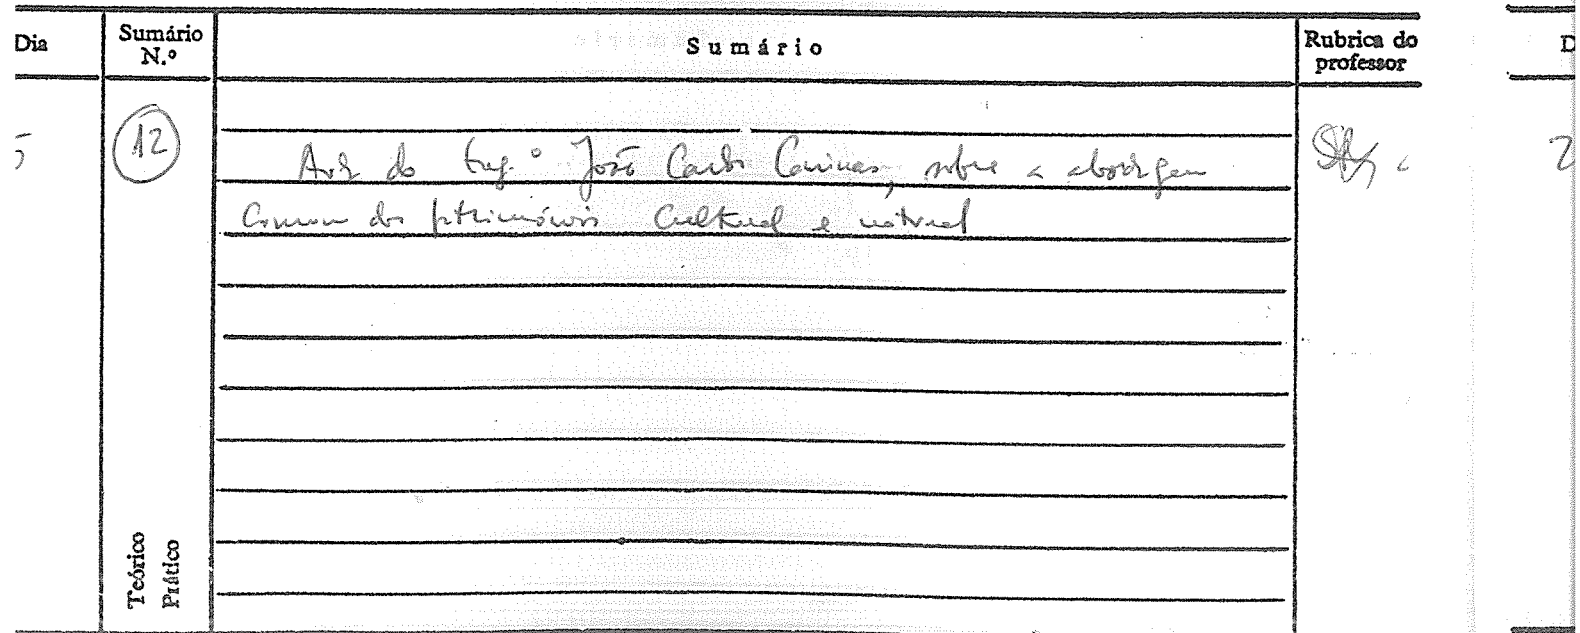 Dia Sumário N.º Sumário Rubrica do professor D
5 12 Aula do Eng.º João Carlos Caninas, sobre a abordagem 2
comum dos patrimónios cultural e natural
Teórico
Prático